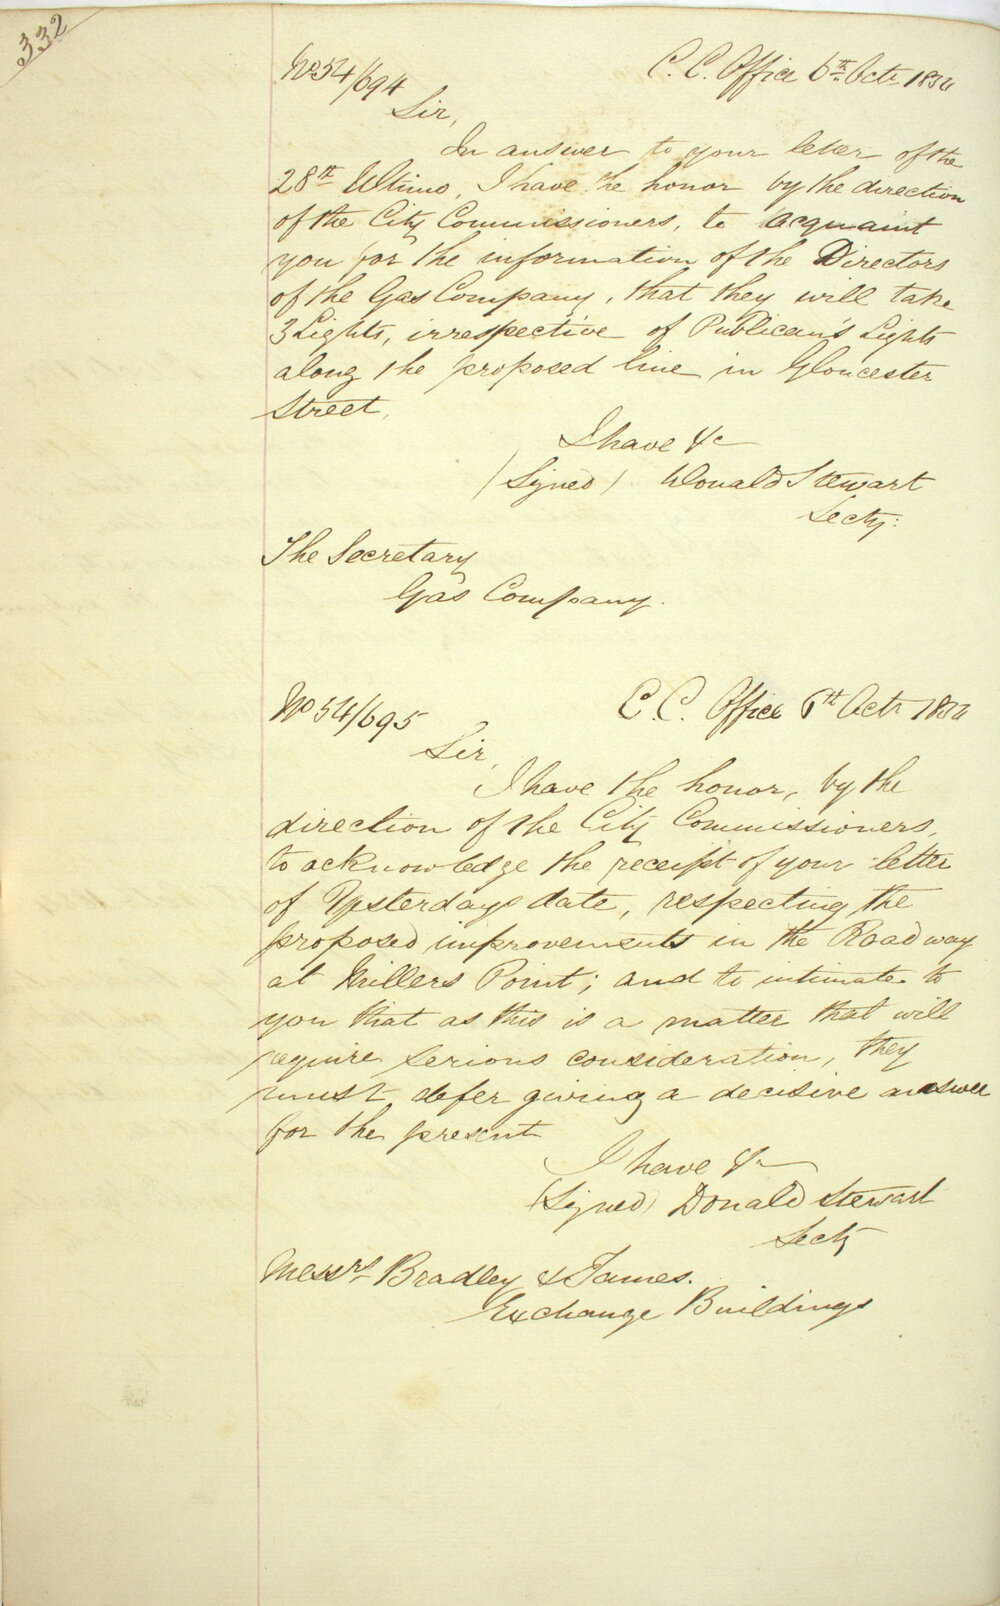 332
No 54/694
C. C. Office 6th Octr 1854
Sir,
In answer to your letter of the
28th Ultimo, I have the honor by the direction
of the City Commissioners, to acquaint
you for the information of the Directors
of the Gas Company, that they will take
3 Lights, irrespective of Publican's Lights
along the proposed line in Gloucester
Street.
I have &c
(Signed) Donald Stewart
Secty:
The Secretary
Gas Company.
No 54/695
C. C. Office 6th Octr 1854
Sir,
I have the honor, by the
direction of the City Commissioners,
to acknowledge the receipt of your letter
of Yesterdays date, respecting the
proposed improvements in the Roadway
at Millers Point; and to intimate to
you that as this is a matter that will
require serious consideration, they
must defer giving a decisive answer
for the present
I have &c
(Signed) Donald Stewart
Secty
Messrs Bradley & James.
Exchange Buildings